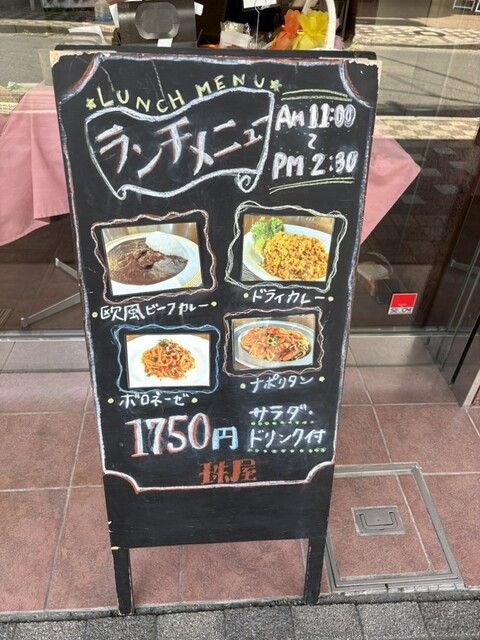 LUNCH MENU
ランチメニュー
AM 11:00
〜
PM 2:30
欧風ビーフカレー
ドライカレー
ボロネーゼ
ナポリタン
1750円
サラダ・
ドリンク付
珠屋
SECOM